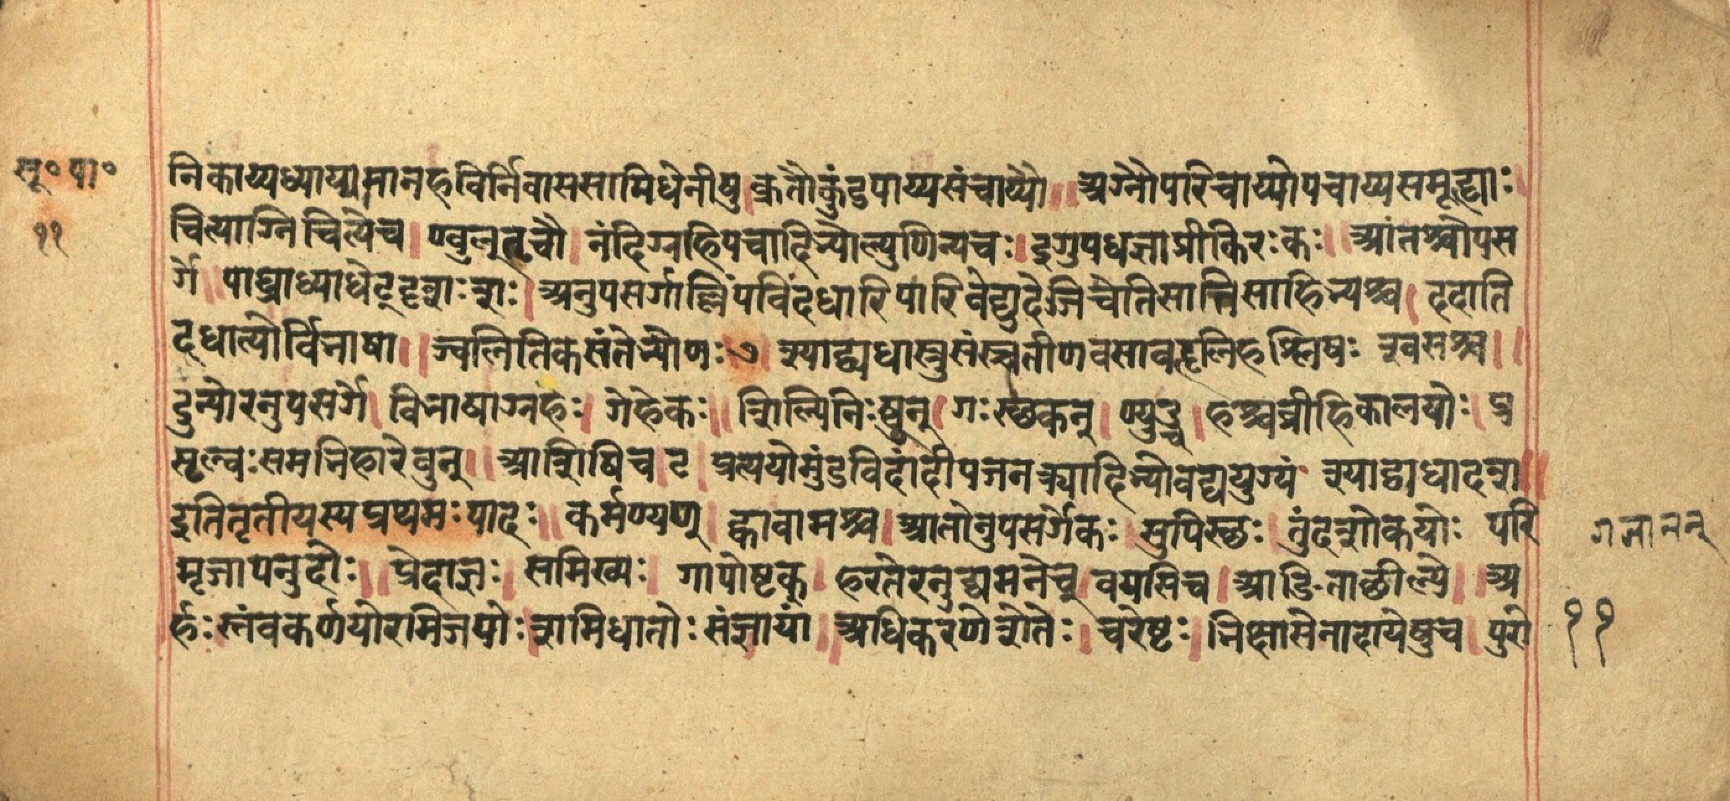 सू॰पा॰
११
निकाय्यधाय्यामानहविर्निवाससामिधेनीषु। क्रतौकुंडपाय्यसंचाय्यौ॥ अग्नौपरिचाय्योपचाय्यसमूह्याः।
चित्याग्निचित्येच। ण्वुल्तृचौ। नंदिग्रहिपचादिभ्योल्युणिन्यचः। इगुपधज्ञाप्रीकिरःकः॥ आतश्चोपस
र्गे॥ पाघ्राध्माधेट्दृशःशः। अनुपसर्गाल्लिंपविंदधारिपारिवेद्युदेजिचेतिसातिसाहिभ्यश्च। ददाति
दधात्योर्विभाषा॥ ज्वलितिकसंतेभ्योणः१ श्याद्व्यधास्रुसंस्र्वतीणवसावहृलिहश्लिषः श्वसश्च॥
दुन्योरनुपसर्गे। विभाषाग्रहः। गेहेकः॥ शिल्पिनिःष्वुन्। गःस्थकन्। ण्युट्च। हश्चव्रीहिकालयोः। प्र
सृल्वःसमभिहारेवुन्॥ आशिषिच। ट प्रत्ययोमुंडविदांदीपजनक्र्यादिभ्योवद्ययुग्यं श्याद्व्यधादश॥
इतितृतीयस्यप्रथमःपादः॥ कर्मण्यण्। ह्वावामश्च। आतोनुपसर्गेकः। सुपिस्थः। तुंदशोकयोः परि
मृजापनुदोः॥ प्रेदाज्ञः। समिख्यः। गापोष्टक्। हरतेरनुद्यमनेच्। वयसिच। आङिताच्छील्ये॥ अ
र्हः। स्तंबकर्णयोरमिजपोः। शमिधातोः संज्ञायां॥ अधिकरणेशेतेः। चरेष्टः। भिक्षासेनादायेषुच। पुरो
गजानन्
११